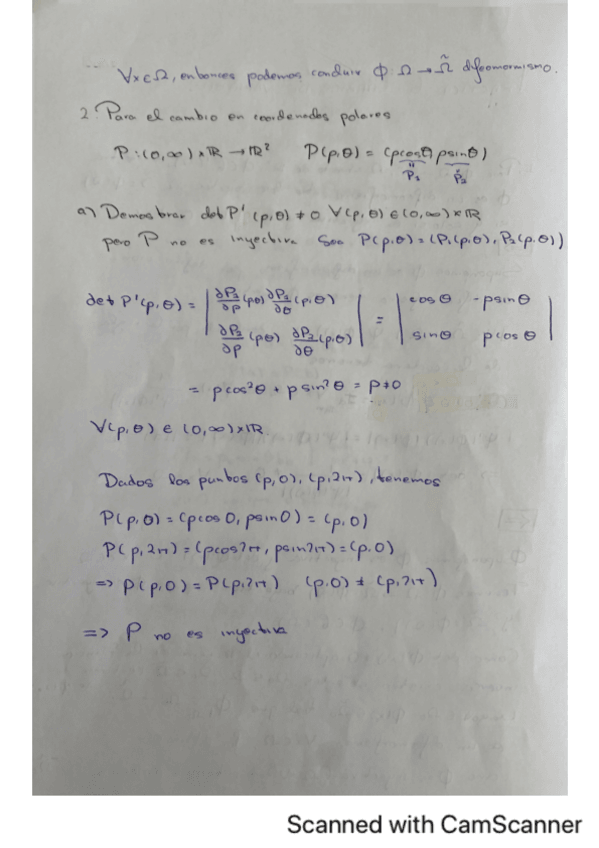 ∀x∈Ω, entonces podemos concluir Φ: Ω → Ω̃ difeomormismo.
2. Para el cambio en coordenadas polares
P: (0,∞)×ℝ → ℝ² P(ρ,θ) = (ρcosθ, ρsinθ)
" "
P₁ P₂
a) Demostrar det P'(ρ,θ) ≠ 0 ∀(ρ,θ) ∈ (0,∞)×ℝ
pero P no es inyectiva. Sea P(ρ,θ) = (P₁(ρ,θ), P₂(ρ,θ))
det P'(ρ,θ) = | ∂P₁/∂ρ (ρ,θ) ∂P₁/∂θ (ρ,θ) | = | cosθ -ρsinθ |
| ∂P₂/∂ρ (ρ,θ) ∂P₂/∂θ (ρ,θ) | | sinθ ρcosθ |
= ρcos²θ + ρsin²θ = ρ ≠ 0
∀(ρ,θ) ∈ (0,∞)×ℝ.
Dados los puntos (ρ,0), (ρ,2π), tenemos
P(ρ,0) = (ρcos0, ρsin0) = (ρ,0)
P(ρ,2π) = (ρcos2π, ρsin2π) = (ρ,0)
=> P(ρ,0) = P(ρ,2π) (ρ,0) ≠ (ρ,2π)
=> P no es inyectiva
Scanned with CamScanner